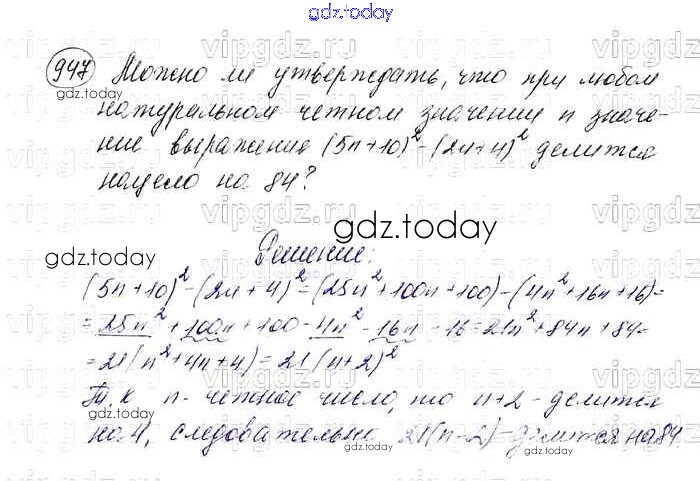 gdz.today
947 Можно ли утверждать, что при любом
gdz.today
натуральном четном значении n значе-
ние выражения (5n+10)²-(2n+4)² делится
нацело на 84?
gdz.today
gdz.today
Решение:
(5n+10)²-(2n+4)²=(25n²+100n+100)-(4n²+16n+16)=
=25n²+100n+100-4n²-16n-16=21n²+84n+84=
=21(n²+4n+4)=21(n+2)²
Т.к n- четное число, то n+2-делится
gdz.today
на 4, следовательно 21(n-2)-делится на 84.
gdz.today